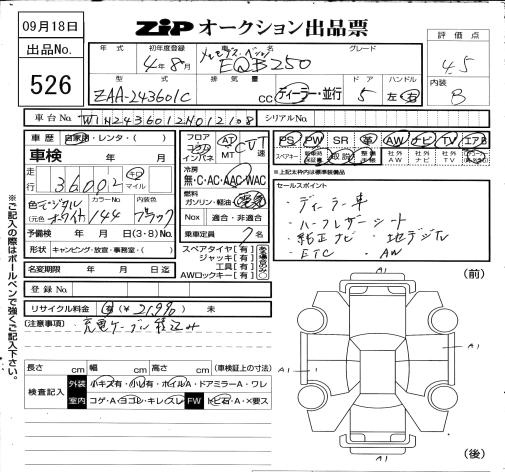 09月18日
ZIP オークション出品票
評価点
4.5
内装
B
出品No.
526
年式 初年度登録 車名 グレード
4年8月 メルセデス・ベンツ EQB250
型式 排気量 ドア ハンドル
ZAA-243601C cc ディーラー・並行 5 左 右
車台No. W1N2436012N012108 シリアルNo.
車歴 自家用・レンタ・( )
車検 年 月
走行 36002 キロ マイル
色 デジタルホワイト カラーNo. 144 内装色 ブラック
(元色 )
予備検 年 月 日(3・8)No.
形状 キャンピング・放宣・事務室・( )
名変期限 年 月 日迄
登録No.
フロア コラム インパネ AT MT CVT 速
冷房 無・C・AC・AAC・WAC
燃料 ガソリン・軽油・電気
Nox 適合・非適合
乗車定員 7名
スペアタイヤ[有]
ジャッキ[有]
工具[有]
AWロックキー[有]
PS PW SR 革 AW ナビ TV エアB
スペアキー 取説 社外AW 社外ナビ 社外TV
↑上記太枠は標準装備品
セールスポイント
・ディーラー車
・ハーフレザーシート
・純正ナビ ・地デジタル
・ETC ・AW
リサイクル料金 有(¥21,990) 未
(注意事項) 充電ケーブル積込み
長さ cm 幅 cm 高さ cm (車検証上の寸法)
検査記入 外装 小キズ有・小凹有・ホイルA・ドアミラーA・ワレ
室内 コゲ・A・ヨゴレ・キレ・スレ FW トビ石・A・×要ス
A1
(前)
A1
A1
A1
(後)
※ご記入の際はボールペンで強くご記入下さい。